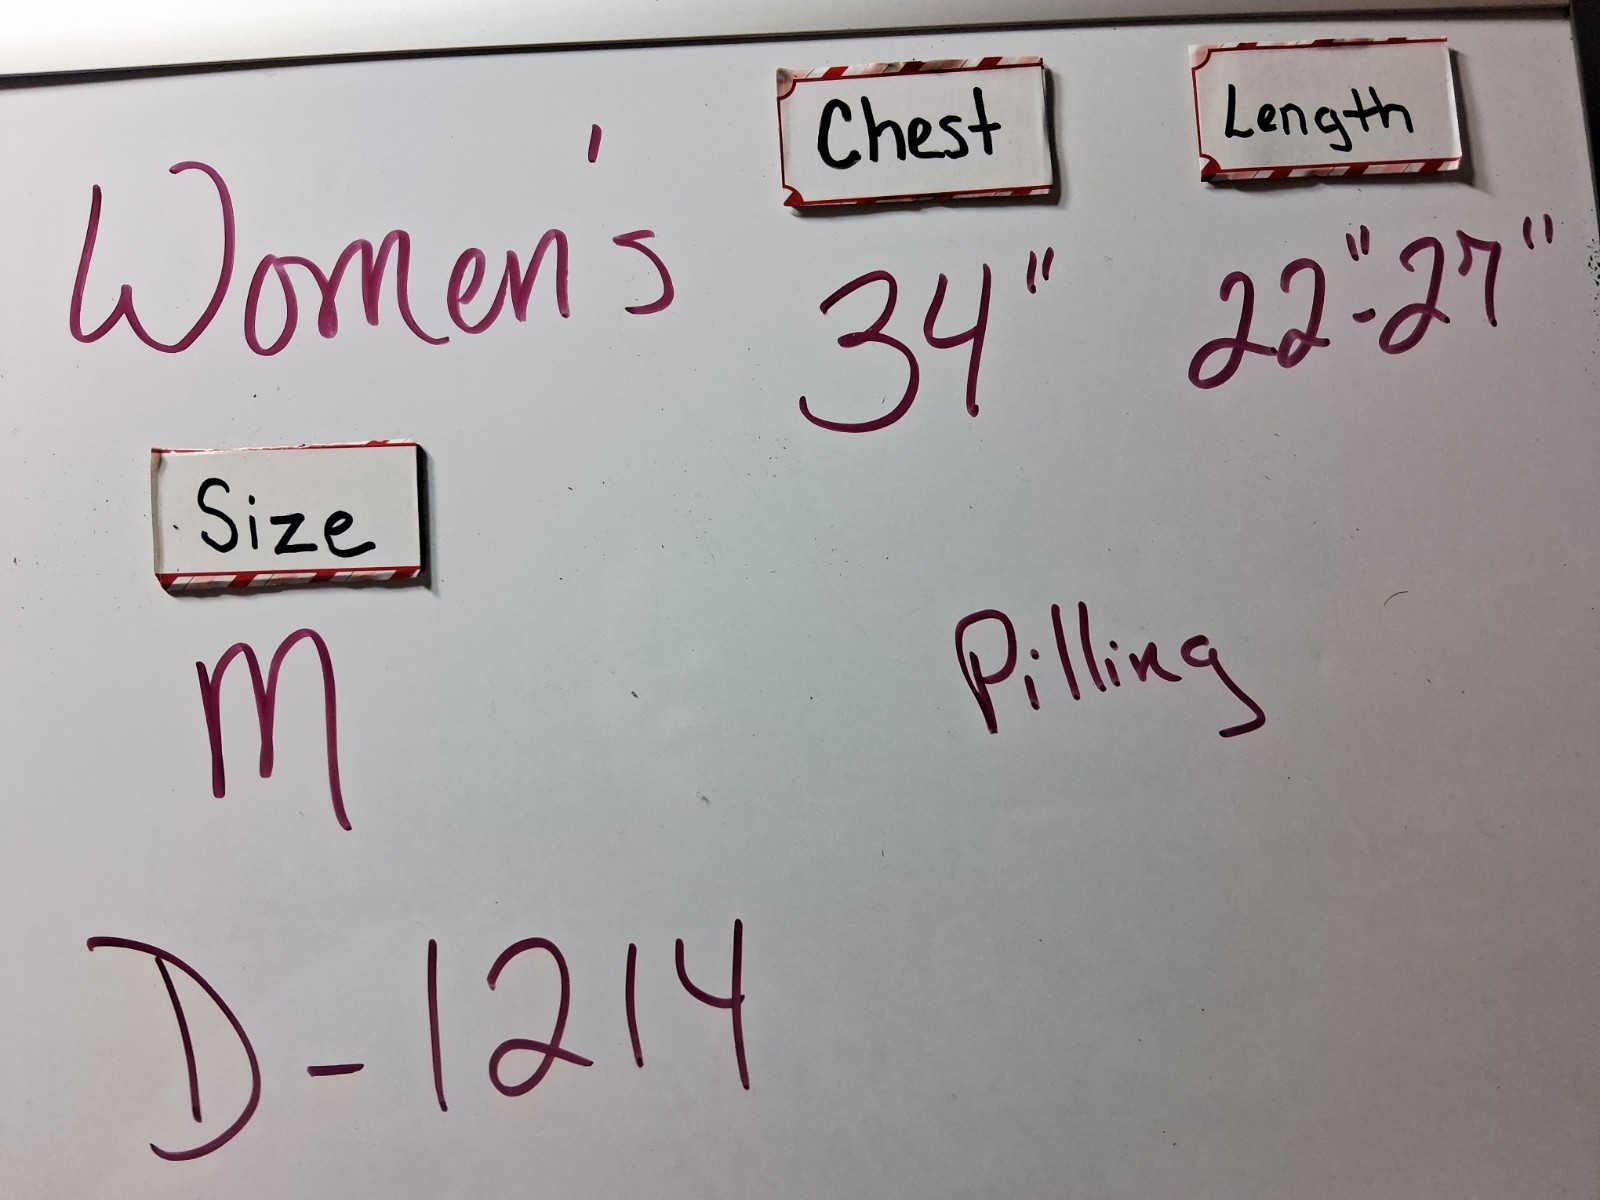 Chest Length
Women's 34" 22"-27"
Size
M
Pilling
D-1214